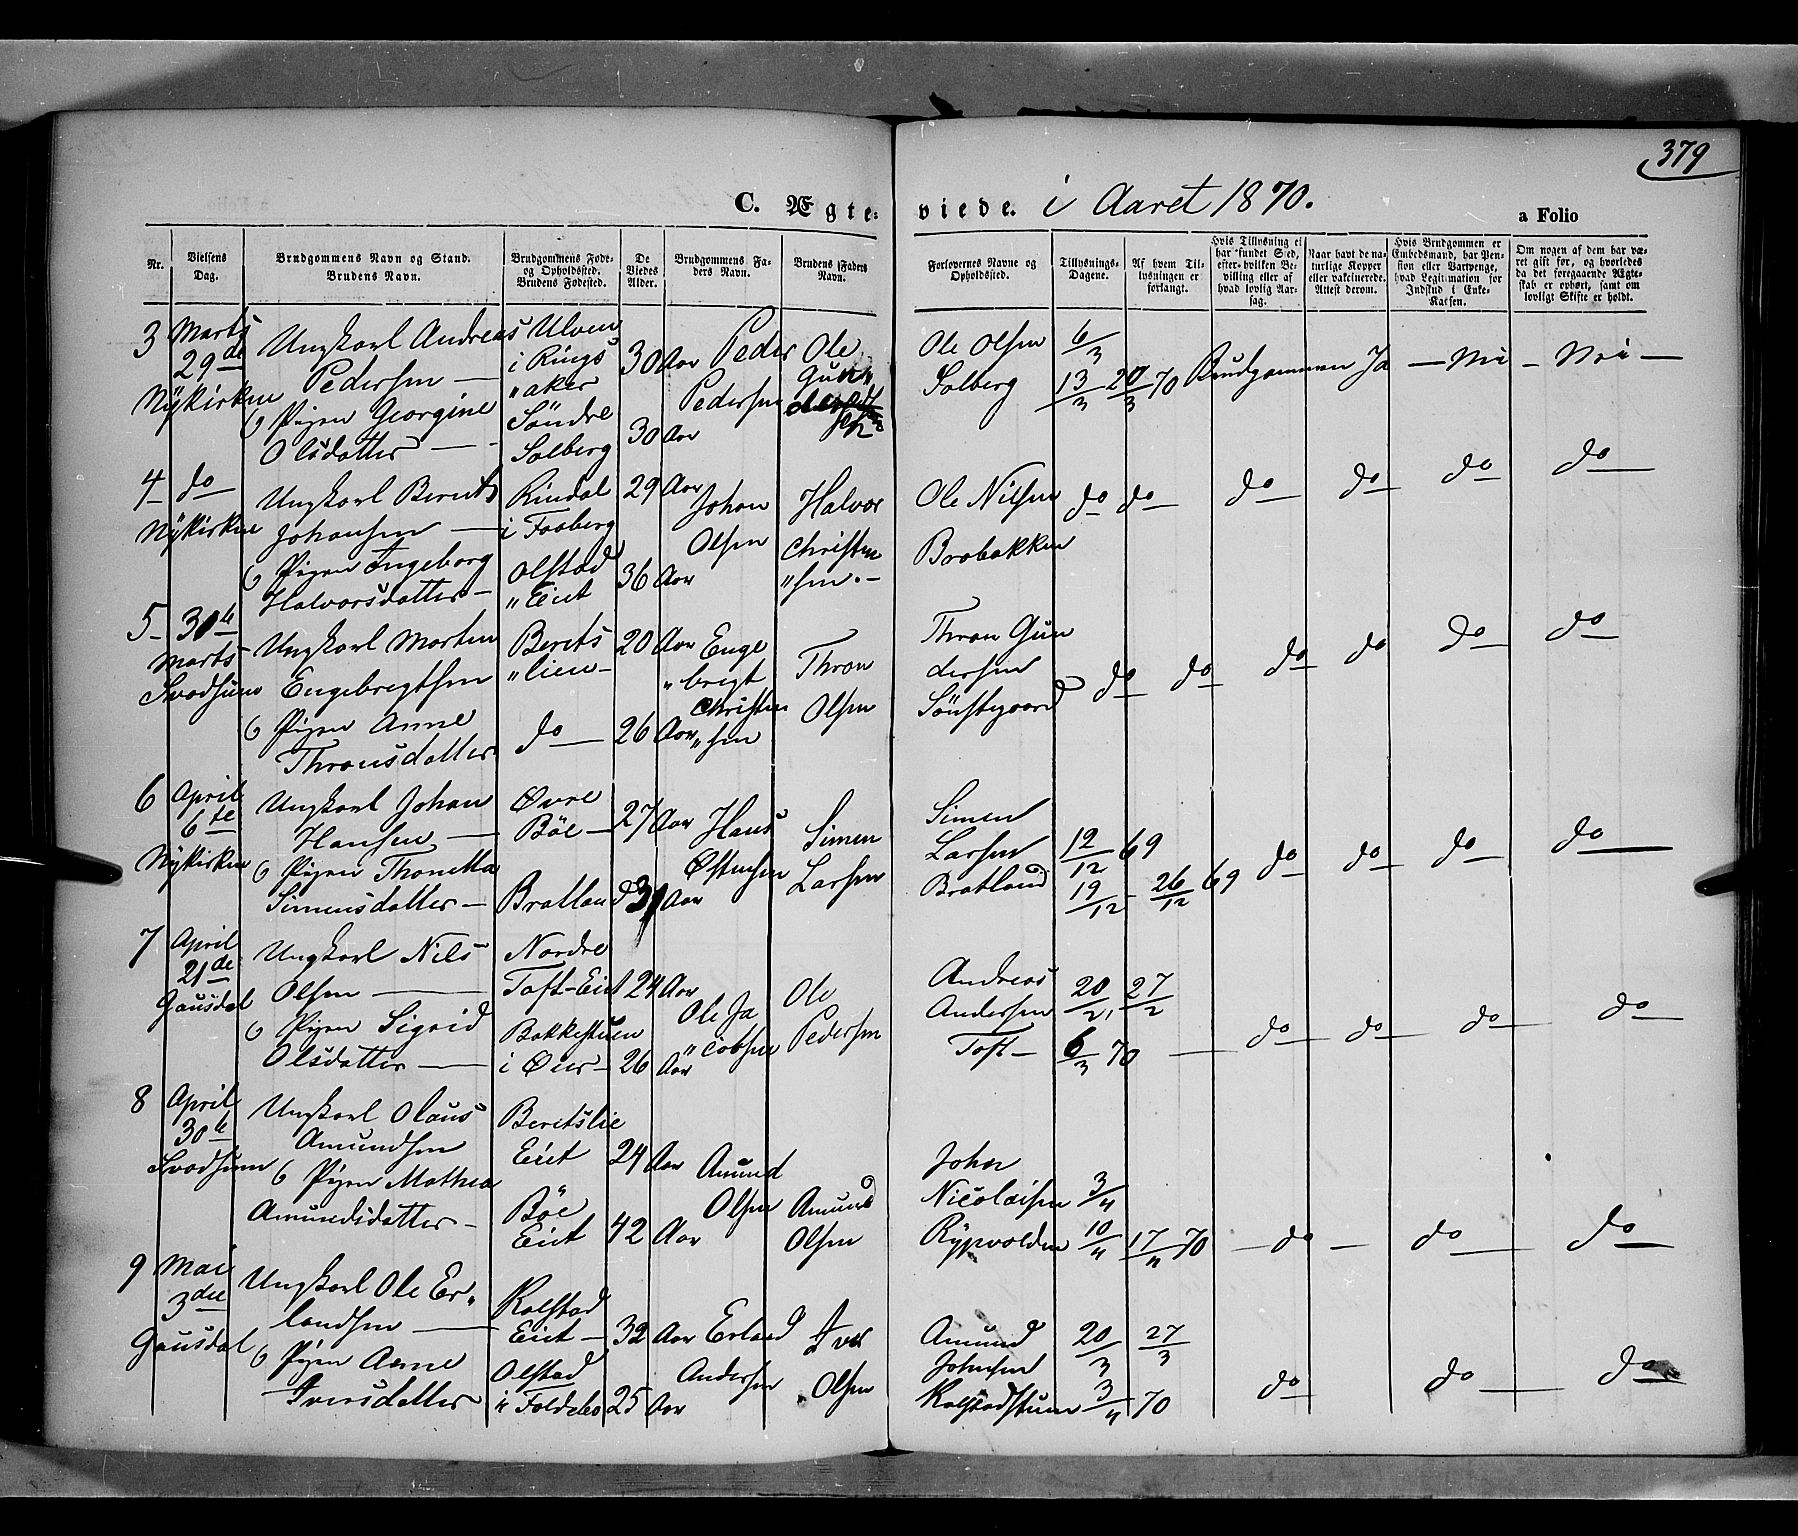 379
C. Ægteviede. i Aaret 1870.
a Folio
Nr.
Vielsens Dag.
Brudgommens Navn og Stand. Brudens Navn.
Brudgommens Føde- og Opholdssted. Brudens Fødested.
De Viedes Alder.
Brudgommens Faders Navn.
Brudens Faders Navn.
Forlovernes Navne og Opholdssted.
Tillysnings-Dagene.
Af hvem Tillysningen er forlangt.
Hvis Tillysning ei har fundet Sted, efter hvilken Bevilling eller af hvad lovlig Aarsag.
Naar havt de naturlige Kopper eller vakcinerede. Attest derom.
Hvis Brudgommen er Embedsmand, har Pension eller Vartpenge, hvad Legitimation for Indskud i Enke-Kassen.
Om nogen af dem har været gift før, og hvorledes da det foregaaende Ægteskab er ophørt, samt om lovligt Skifte er holdt.
3
Marts 29de Nykirken
Ungkarl Andreas Pedersen —
Pigen Georgine Olsdatter —
Ulven i Rings„aker
Søndre Solberg
30 Aar
30 Aar
Peder Pedersen
Ole Gun„
Ole Olsen Solberg
6/3 13/3 20/3 70
Brudgommen Ja — Nei — Nei —
4
do Nykirken
Ungkarl Berent Johansen —
Pigen Ingeborg Halvorsdatter —
Rindal i Faaberg
Olstad „Eiet
29 Aar
36 Aar
Johan Olsen
Halvor Christen„sen. —
Ole Nilsen Brobakken
do do do do do do
5
30te Marts Svadsum
Ungkarl Morten Engebregtsen
Pigen Anne Thronsdatter
Berets„lien —
do —
20 Aar
26 Aar
Enge„bregt Christen„sen
Thron Olsen
Thron Gundersen Sønstegaard
do do do do do do
6
April 6te Nykirken
Ungkarl Johan Hansen —
Pigen Thonetta Simensdatter —
Øvre Bøe —
Bratland
27 Aar
31 Aar
Hans Østensen
Simen Larsen
Simen Larsen Bratland
12/12 69 19/12 26/12 69
do do do do
7
April 21de Gausdal
Ungkarl Nils Olsen —
Pigen Sigrid Olsdatter —
Nordre Toft-Eiet
Bakkestuen i Øier —
24 Aar
26 Aar
Ole Ja„cobsen
Ole Pedersen
Andreas Andersen Toft —
20/2, 27/2 6/3 70
do do do do
8
April 30te Svadsum
Ungkarl Olaus Amundsen
Pigen Mathea Amundsdatter —
Beretslie Eiet
Bøe Eiet
24 Aar
42 Aar
Amund Olsen
Amund Olsen
John Nicolaisen Rypvolden
3/4 10/4 17/4 70
— do — do do
9
Mai 3die Gausdal
Ungkarl Ole Er„landsen —
Pigen Anne Iversdatter
Kalstad Eiet —
Olstad i Foldebo
32 Aar
25 Aar
Erland Andersen
Iver Olsen
Amund Johnsen Kalstadstuen
20/3 27/3 3/4 70
do do do